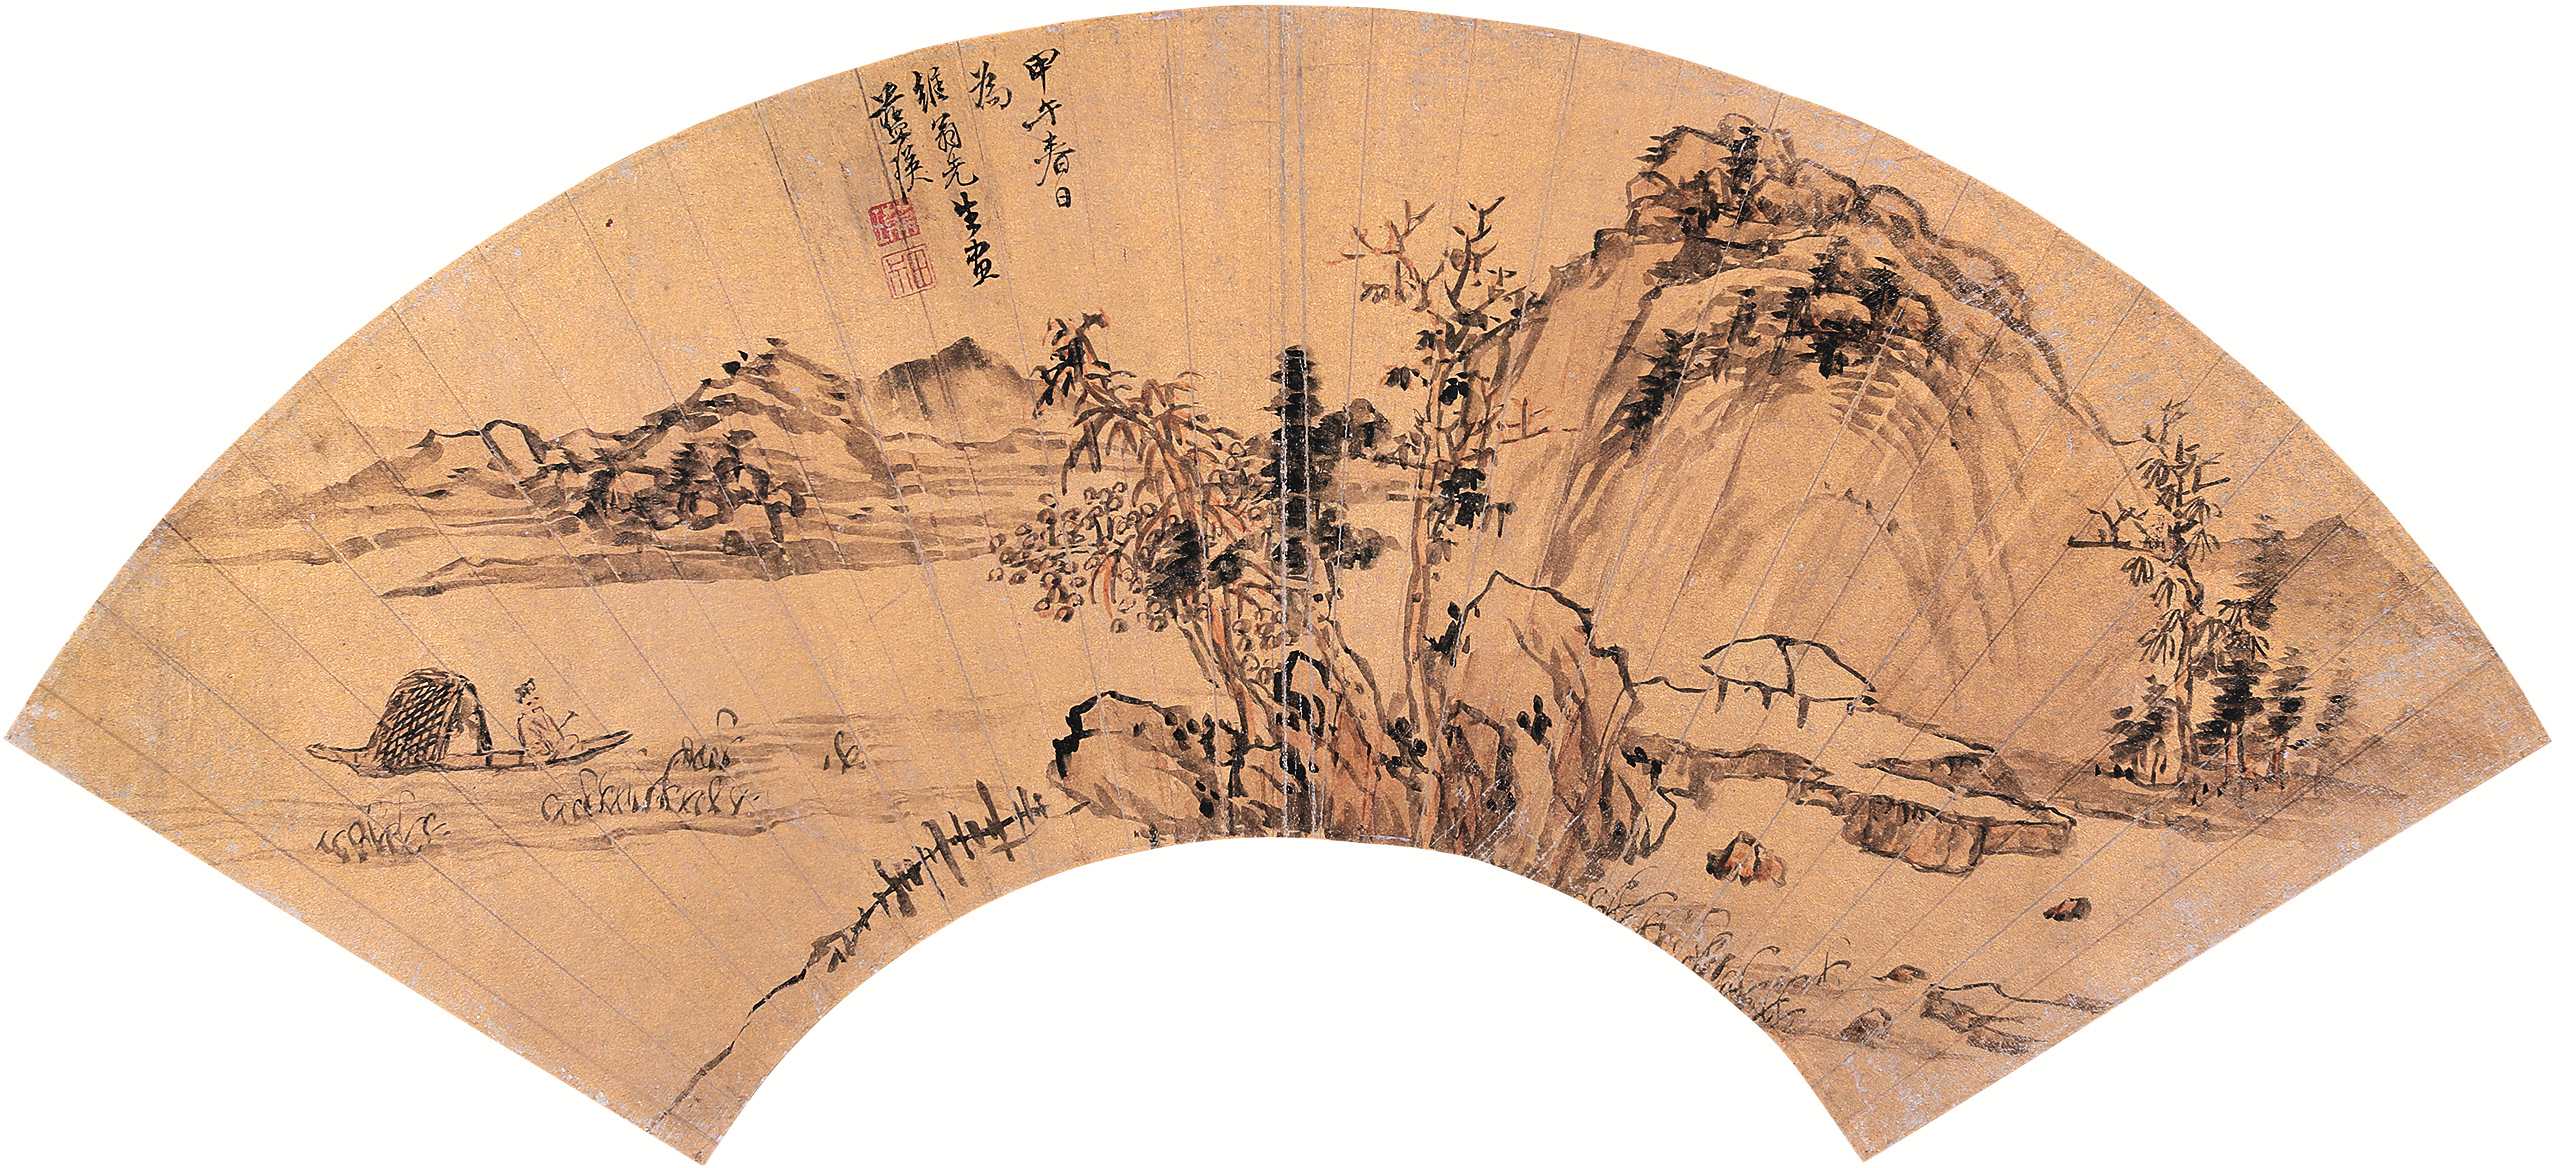 甲午春日
為
維翁先生畫
藍瑛